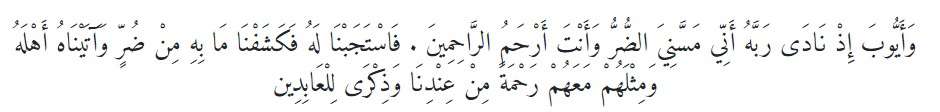 وَأَيُّوبَ إِذْ نَادَى رَبَّهُ أَنِّي مَسَّنِيَ الضُّرُّ وَأَنْتَ أَرْحَمُ الرَّاحِمِينَ . فَاسْتَجَبْنَا لَهُ فَكَشَفْنَا مَا بِهِ مِنْ ضُرٍّ وَآَتَيْنَاهُ أَهْلَهُ
وَمِثْلَهُمْ مَعَهُمْ رَحْمَةً مِنْ عِنْدِنَا وَذِكْرَى لِلْعَابِدِين